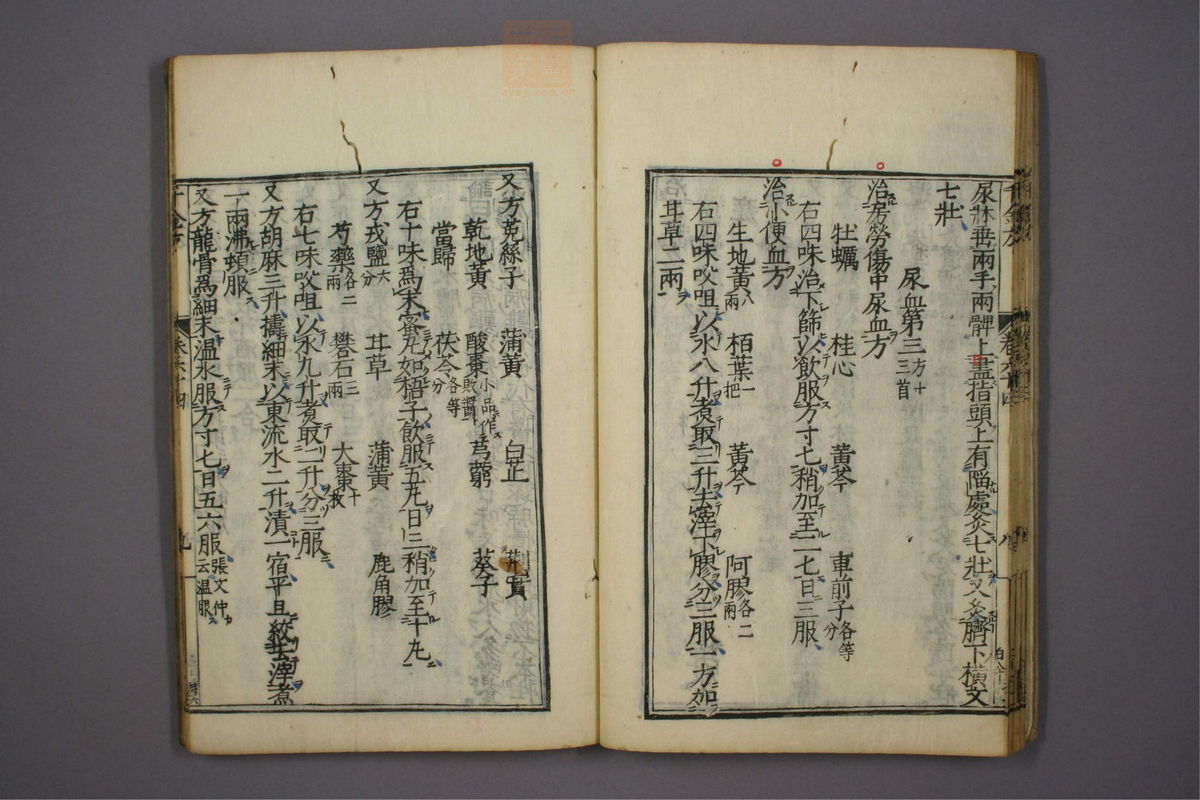 尿牀垂兩手兩髀上盡指頭上有陷處灸七壯又灸臍下橫文
七壯
尿血第三方十三首
治房勞傷中尿血方
牡蠣 桂心 黃芩 車前子各等分
右四味治下篩以飲服方寸匕稍加至二匕日三服
治小便血方
生地黃八兩 栢葉一把 黃芩 阿膠各二兩
右四味㕮咀以水八升煮取三升去滓下膠分三服一方加
耳草二兩
又方菟絲子 蒲黃 白芷 荆實
乾地黃 酸棗小品作敗醬 芎藭 葵子
當歸 茯苓各等分
右十味爲末蜜丸如梧子飲服五丸日三稍加至十丸
又方戎鹽六分 耳草 蒲黃 鹿角膠
芍藥各二兩 礬石三兩 大棗十枚
右七味㕮咀以水九升煮取二升分三服
又方胡麻三升擣細末以東流水二升漬一宿平旦絞去滓煮
一兩沸頓服
又方龍骨爲細末溫水服方寸匕日五六服張文仲云溫服